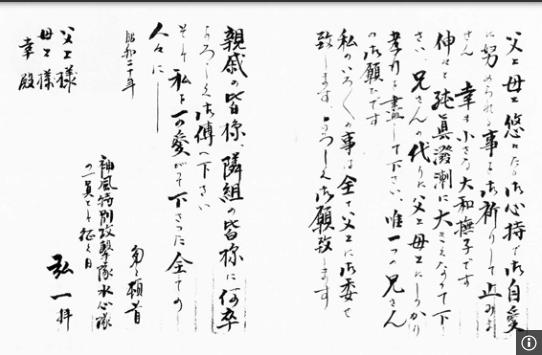 父上母上悠々たる御心持で御自愛
に努められる事を御祈りして止みま
せん 幸も小さき大和撫子です
伸々と純真溌溂に大きくなって下
さい、兄さんの代りに父上母上にしっかり
孝行を盡して下さい、唯一つの兄さん
の御願ひです
私のいろ〱の事は全て父上に御委せ
致します、よろしく御願致します
親戚の皆様、隣組の皆様に何卒
よろしく御傳へ下さい
そして私に愛がて下さった全ての
人々に
昭和二十年
神風特別攻撃隊水心隊
の一員として征く日
弘一拝
父上様
母上様
幸殿